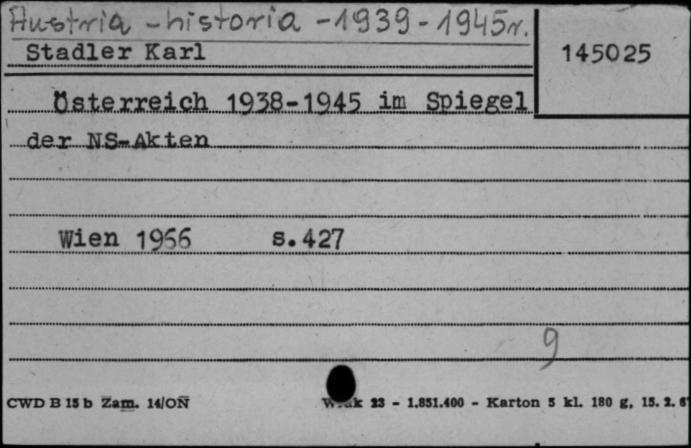 Austria - historia - 1939 - 1945r.
Stadler Karl
145025
Österreich 1938-1945 im Spiegel
der NS-Akten
Wien 1966 s.427
9
CWD B 15 b Zam. 14/ON 23 - 1.851.400 - Karton 5 kl. 180 g, 15. 2.